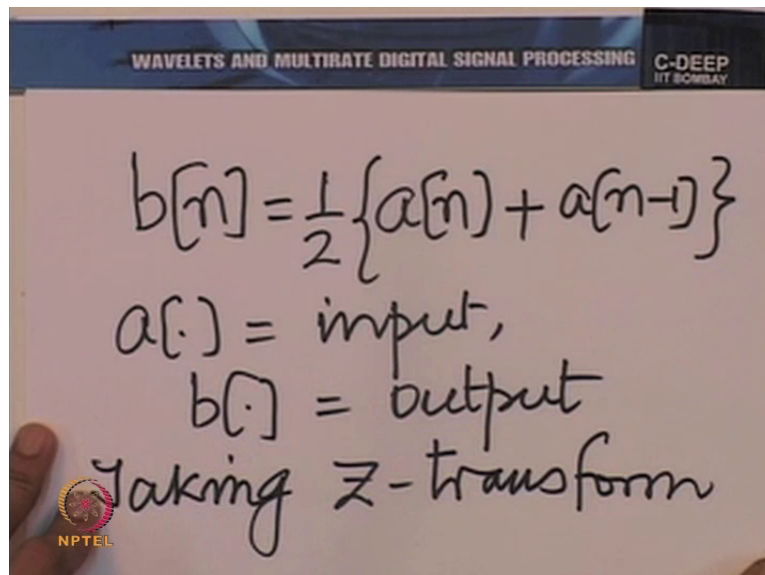 WAVELETS AND MULTIRATE DIGITAL SIGNAL PROCESSING
C-DEEP
IIT BOMBAY
b[n] = 1/2 {a[n] + a[n-1]}
a[.] = input,
b[.] = output
Taking Z-transform
NPTEL